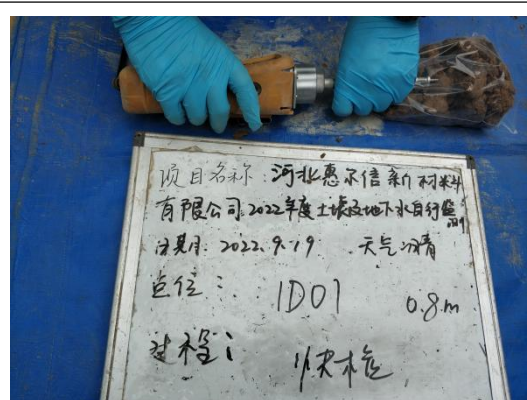 项目名称：河北惠尔信新材料
有限公司2022年度土壤及地下水自行监测
日期：2022.9.19 天气：晴
点位： 1D01 0.8m
过程： 快检